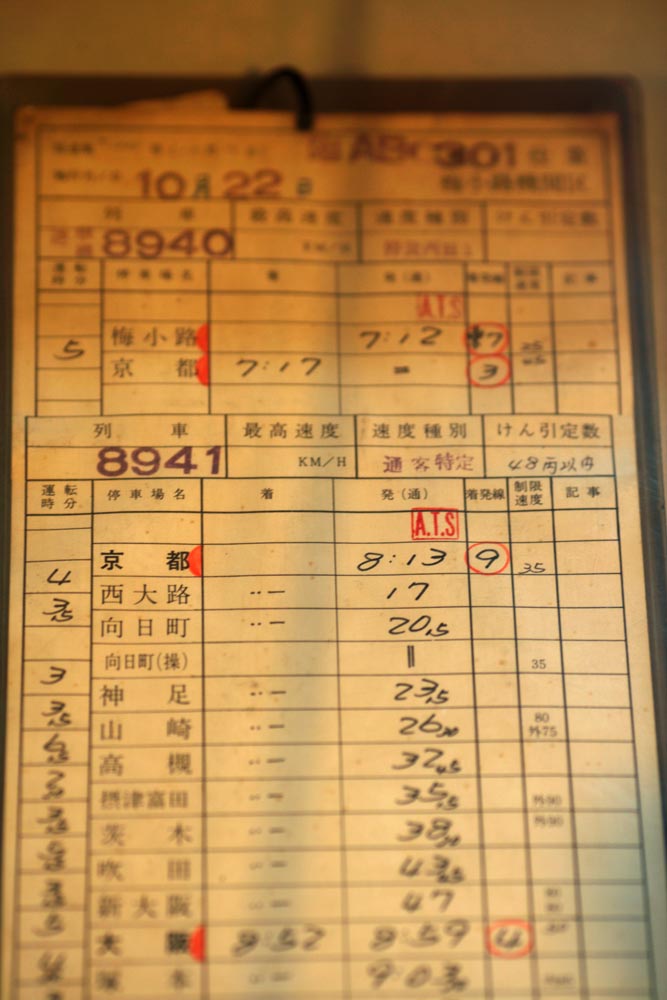 301 仕業
10月22日 梅小路機関区
列車 最高速度 速度種別 けん引定数
8940 KM/H
運転時分 停車場名 着 発(通) 着発線 制限速度 記事
A.T.S
梅小路 7:12 7
5
京都 7:17 = 3
列車 最高速度 速度種別 けん引定数
8941 KM/H 通客特定 48両以内
運転時分 停車場名 着 発(通) 着発線 制限速度 記事
A.T.S
京都 8:13 9 35
4
西大路 ‥ー 17
3,5
向日町 ‥ー 20,5
向日町(操) || 35
3
神足 ‥ー 23,5
3,5
山崎 ‥ー 26 80 外75
高槻 ‥ー 32,45
摂津富田 ‥ー 35,5 外90
茨木 ‥ー 38 外90
吹田 ‥ー 43
新大阪 ‥ー 47
大阪 8:52 8:59 4
塚本 ‥ー 9:03